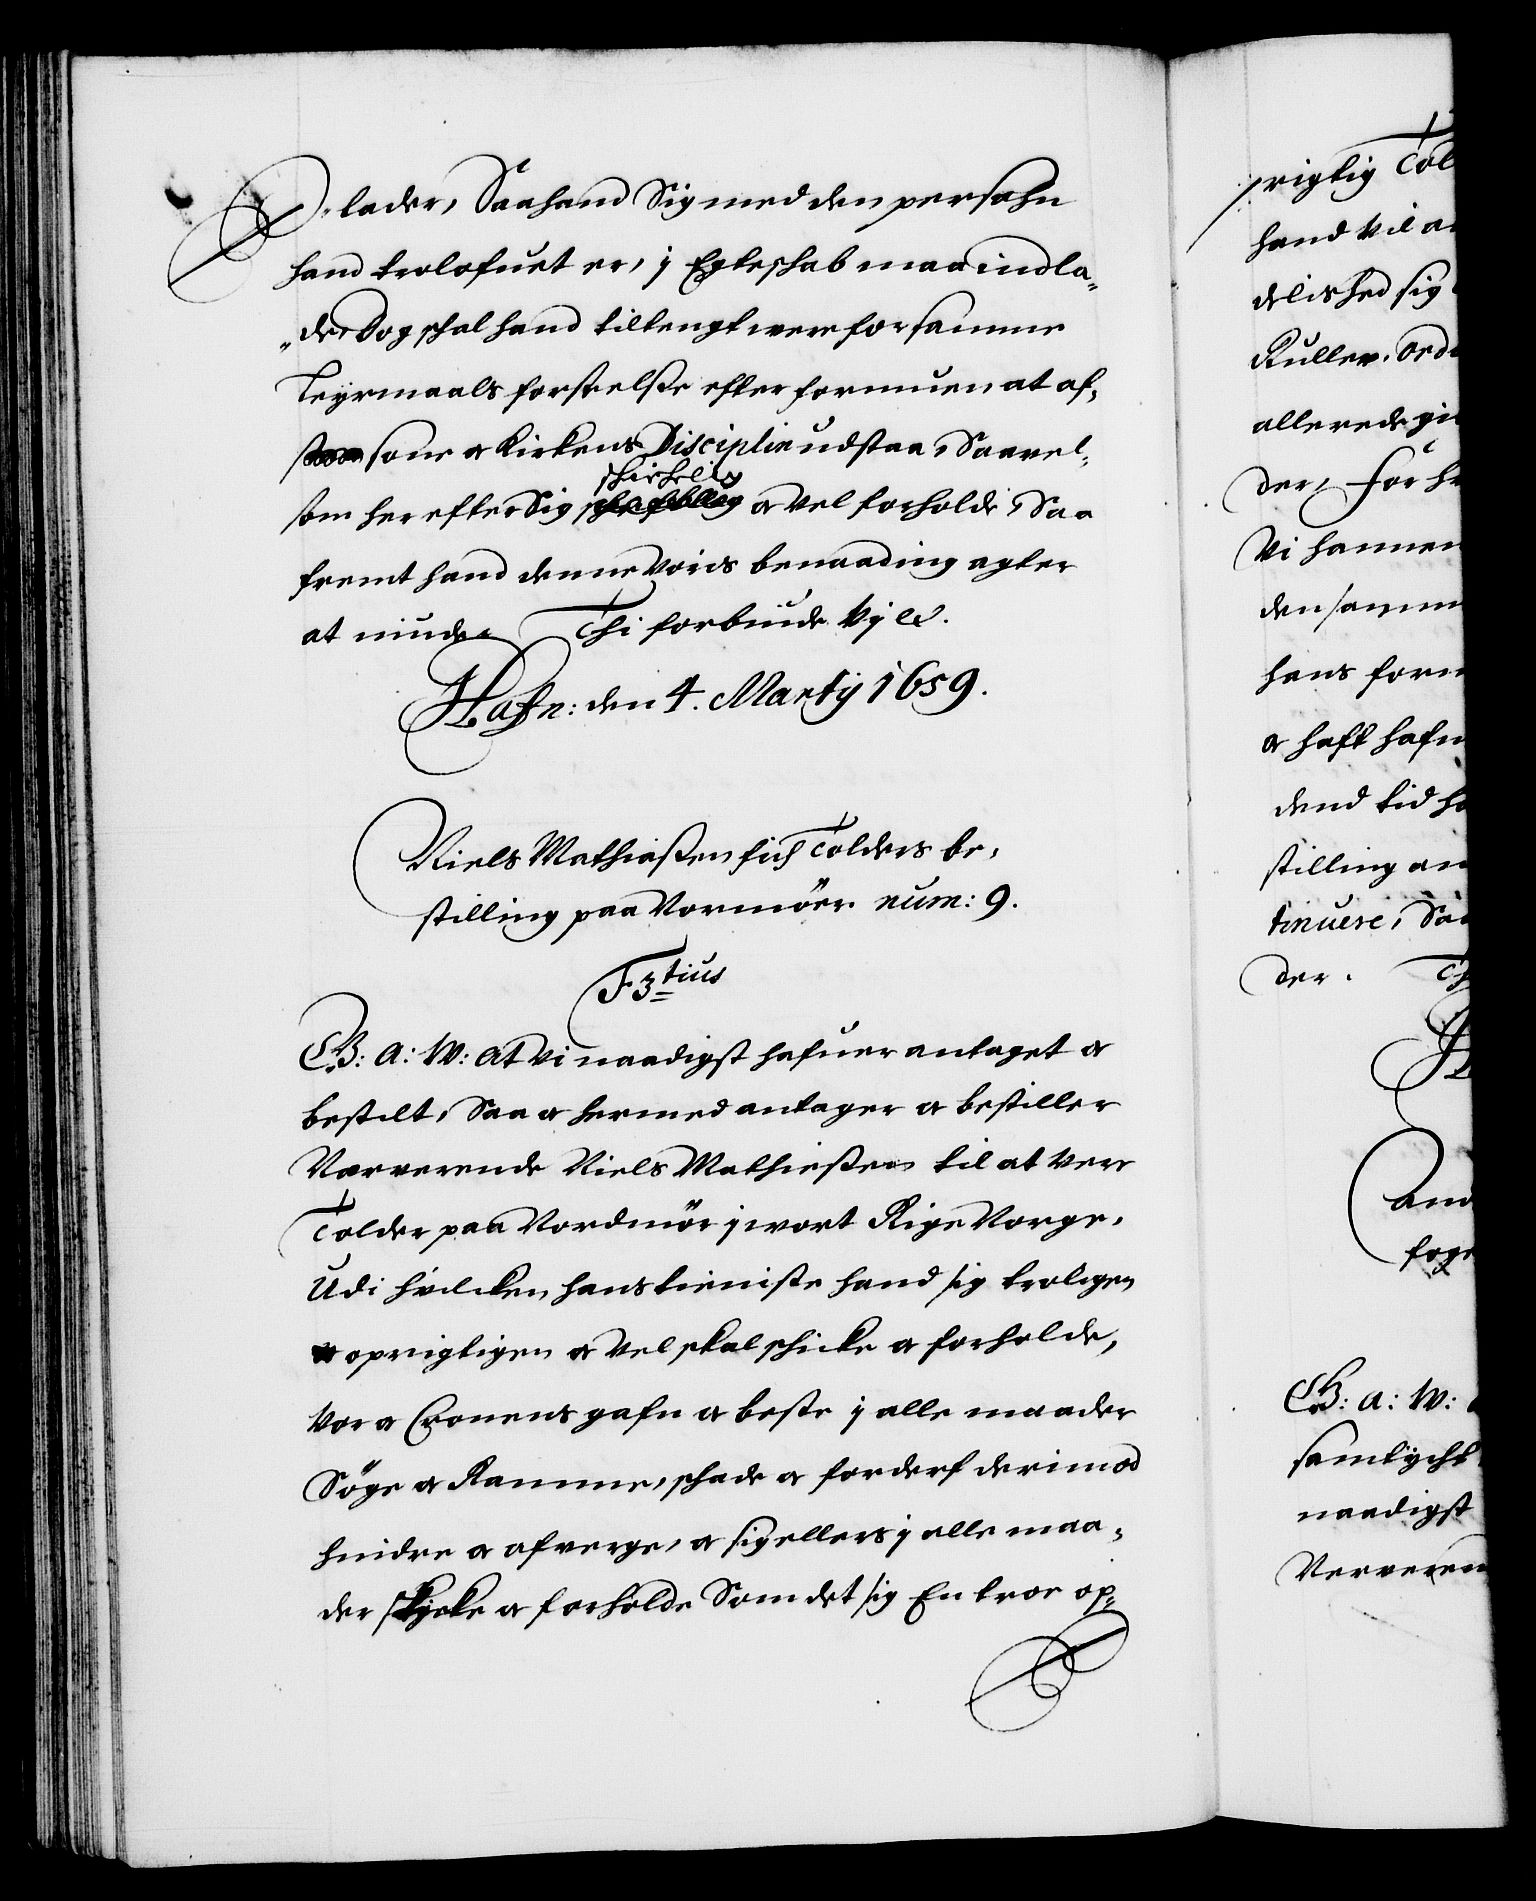 lader, Saa hand Sig med den persohn
hand trolofuet er, j Egteschab maa indla„
„de, Dog schal hand tiltengt were for samme
Leyrmaals forseelsse efter formuen at af„
sone & Kirkens Disciplin udstaa, Saavel„
schickelig
som her efter Sig & vel forholde, Saa
fremt hand denne Voris benaading agter
at niude. Thi forbiude Vj &c.
Hafn: den 4. Martij 1659.
Niels Mathiassen fich Tolders be„
stilling paa Normöer. num: 9.
F 3tius
G: A: W: At Vi naadigst hafuer antaget &
bestilt, Saa & hermed antager & bestiller
Nærverende Niels Mathiessen til at vere
Tolder paa Nordmör j wort Rige Norge,
Udi hvilcken hans tieniste hand sig troligen
oprigtigen & vel skal schicke & forholde,
Vor & Cronens gafn & beste j alle maader
Söge & Ramme, schade & forderf derimod
hindre & afverge, & sig ellers j alle maa„
der skycke & forholde Som det sig En troe op„
prigtig Tol
hand vil a
delished sig
Rullen. Ord
allerede gi
der, for h
Vi hannem
den samm
hans form
& haft hafu
dend tid h
stilling an
tinuere, Sa
der. Th
H
And
foge
G: A: W:
samtycht
naadigst
Ververen